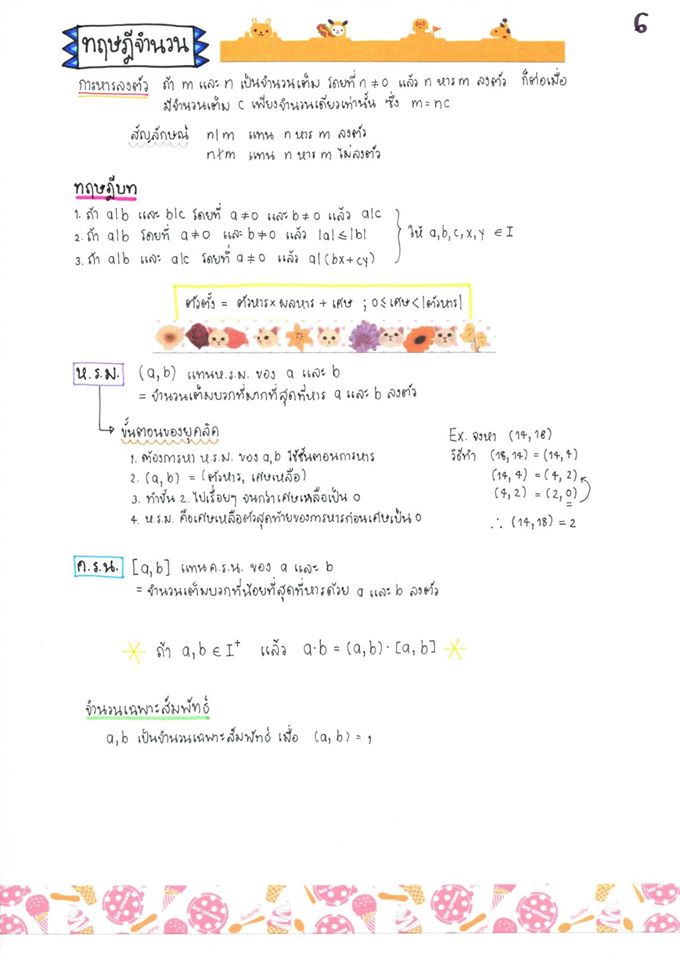 ทฤษฎีจำนวน
6
การหารลงตัว ถ้า m และ n เป็นจำนวนเต็ม โดยที่ n ≠ 0 แล้ว n หาร m ลงตัว ก็ต่อเมื่อ
มีจำนวนเต็ม c เพียงจำนวนเดียวเท่านั้น ซึ่ง m = nc
สัญลักษณ์ n|m แทน n หาร m ลงตัว
n∤m แทน n หาร m ไม่ลงตัว
ทฤษฎีบท
1. ถ้า a|b และ b|c โดยที่ a ≠ 0 และ b ≠ 0 แล้ว a|c
2. ถ้า a|b โดยที่ a ≠ 0 และ b ≠ 0 แล้ว |a| ≤ |b|
ให้ a,b,c,x,y ∈ I
3. ถ้า a|b และ a|c โดยที่ a ≠ 0 แล้ว a|(bx+cy)
ตัวตั้ง = ตัวหาร × ผลหาร + เศษ ; 0 ≤ เศษ < |ตัวหาร|
ห.ร.ม. (a,b) แทน ห.ร.ม. ของ a และ b
= จำนวนเต็มบวกที่มากที่สุดที่หาร a และ b ลงตัว
ขั้นตอนของยุคลิค
1. ต้องการหา ห.ร.ม. ของ a,b ใช้ขั้นตอนการหาร
2. (a,b) = (ตัวหาร, เศษเหลือ)
3. ทำขั้น 2. ไปเรื่อยๆ จนกว่าเศษเหลือเป็น 0
4. ห.ร.ม. คือเศษเหลือตัวสุดท้ายของการหารก่อนเศษเป็น 0
Ex. จงหา (14,18)
วิธีทำ (18,14) = (14,4)
(14,4) = (4,2)
(4,2) = (2,0)
∴ (14,18) = 2
ค.ร.น. [a,b] แทน ค.ร.น. ของ a และ b
= จำนวนเต็มบวกที่น้อยที่สุดที่หารด้วย a และ b ลงตัว
ถ้า a,b ∈ I⁺ แล้ว a·b = (a,b)·[a,b]
จำนวนเฉพาะสัมพัทธ์
a,b เป็นจำนวนเฉพาะสัมพัทธ์ เมื่อ (a,b) = 1